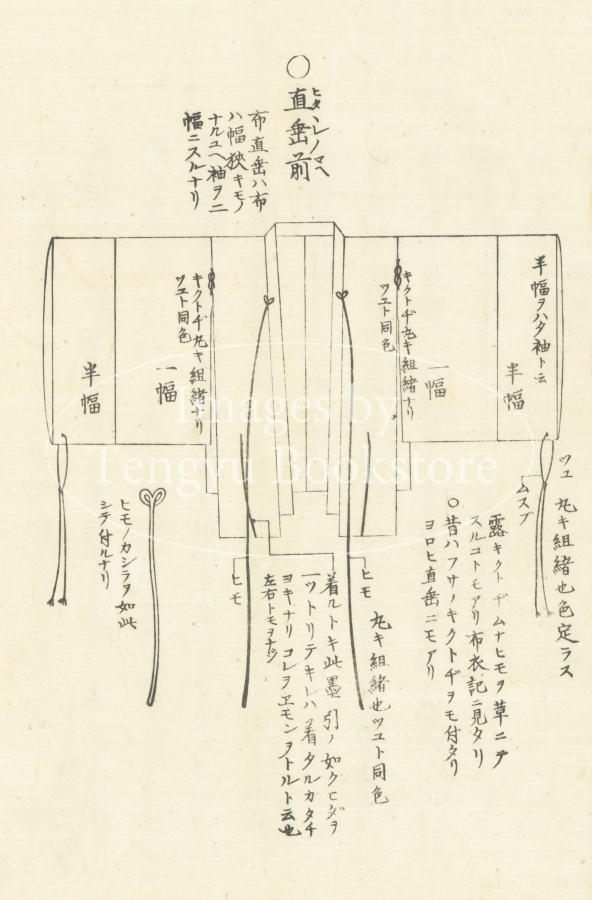 ○直垂前
ヒタヽレノマヘ
布直垂ハ布
ハ幅狭キモノ
ナルユヘ袖ヲ二
幅ニスルナリ
半幅ヲハタ袖ト云
半幅
一幅
キクトヂ丸キ組緒ナリ
ツユト同色
キクトヂ丸キ組緒ナリ
ツユト同色
一幅
半幅
ツユ 丸キ組緒也色定ラス
ムスブ
露キクトヂムナヒモヲ草ニテ
スルコトモアリ布衣記ニ見タリ
○昔ハフサノキクトヂヲモ付タリ
ヨロヒ直垂ニモアリ
ヒモ 丸キ組緒也ツユト同色
着ルトキ此墨引ノ如クヒダヲ
一ツトリテキレハ着タルカタチ
ヨキナリコレヲヱモンヲトルト云也
左右トモヲナジ
ヒモ
ヒモノカシラヲ如此
シテ付ルナリ
Images by
Tengyu Bookstore